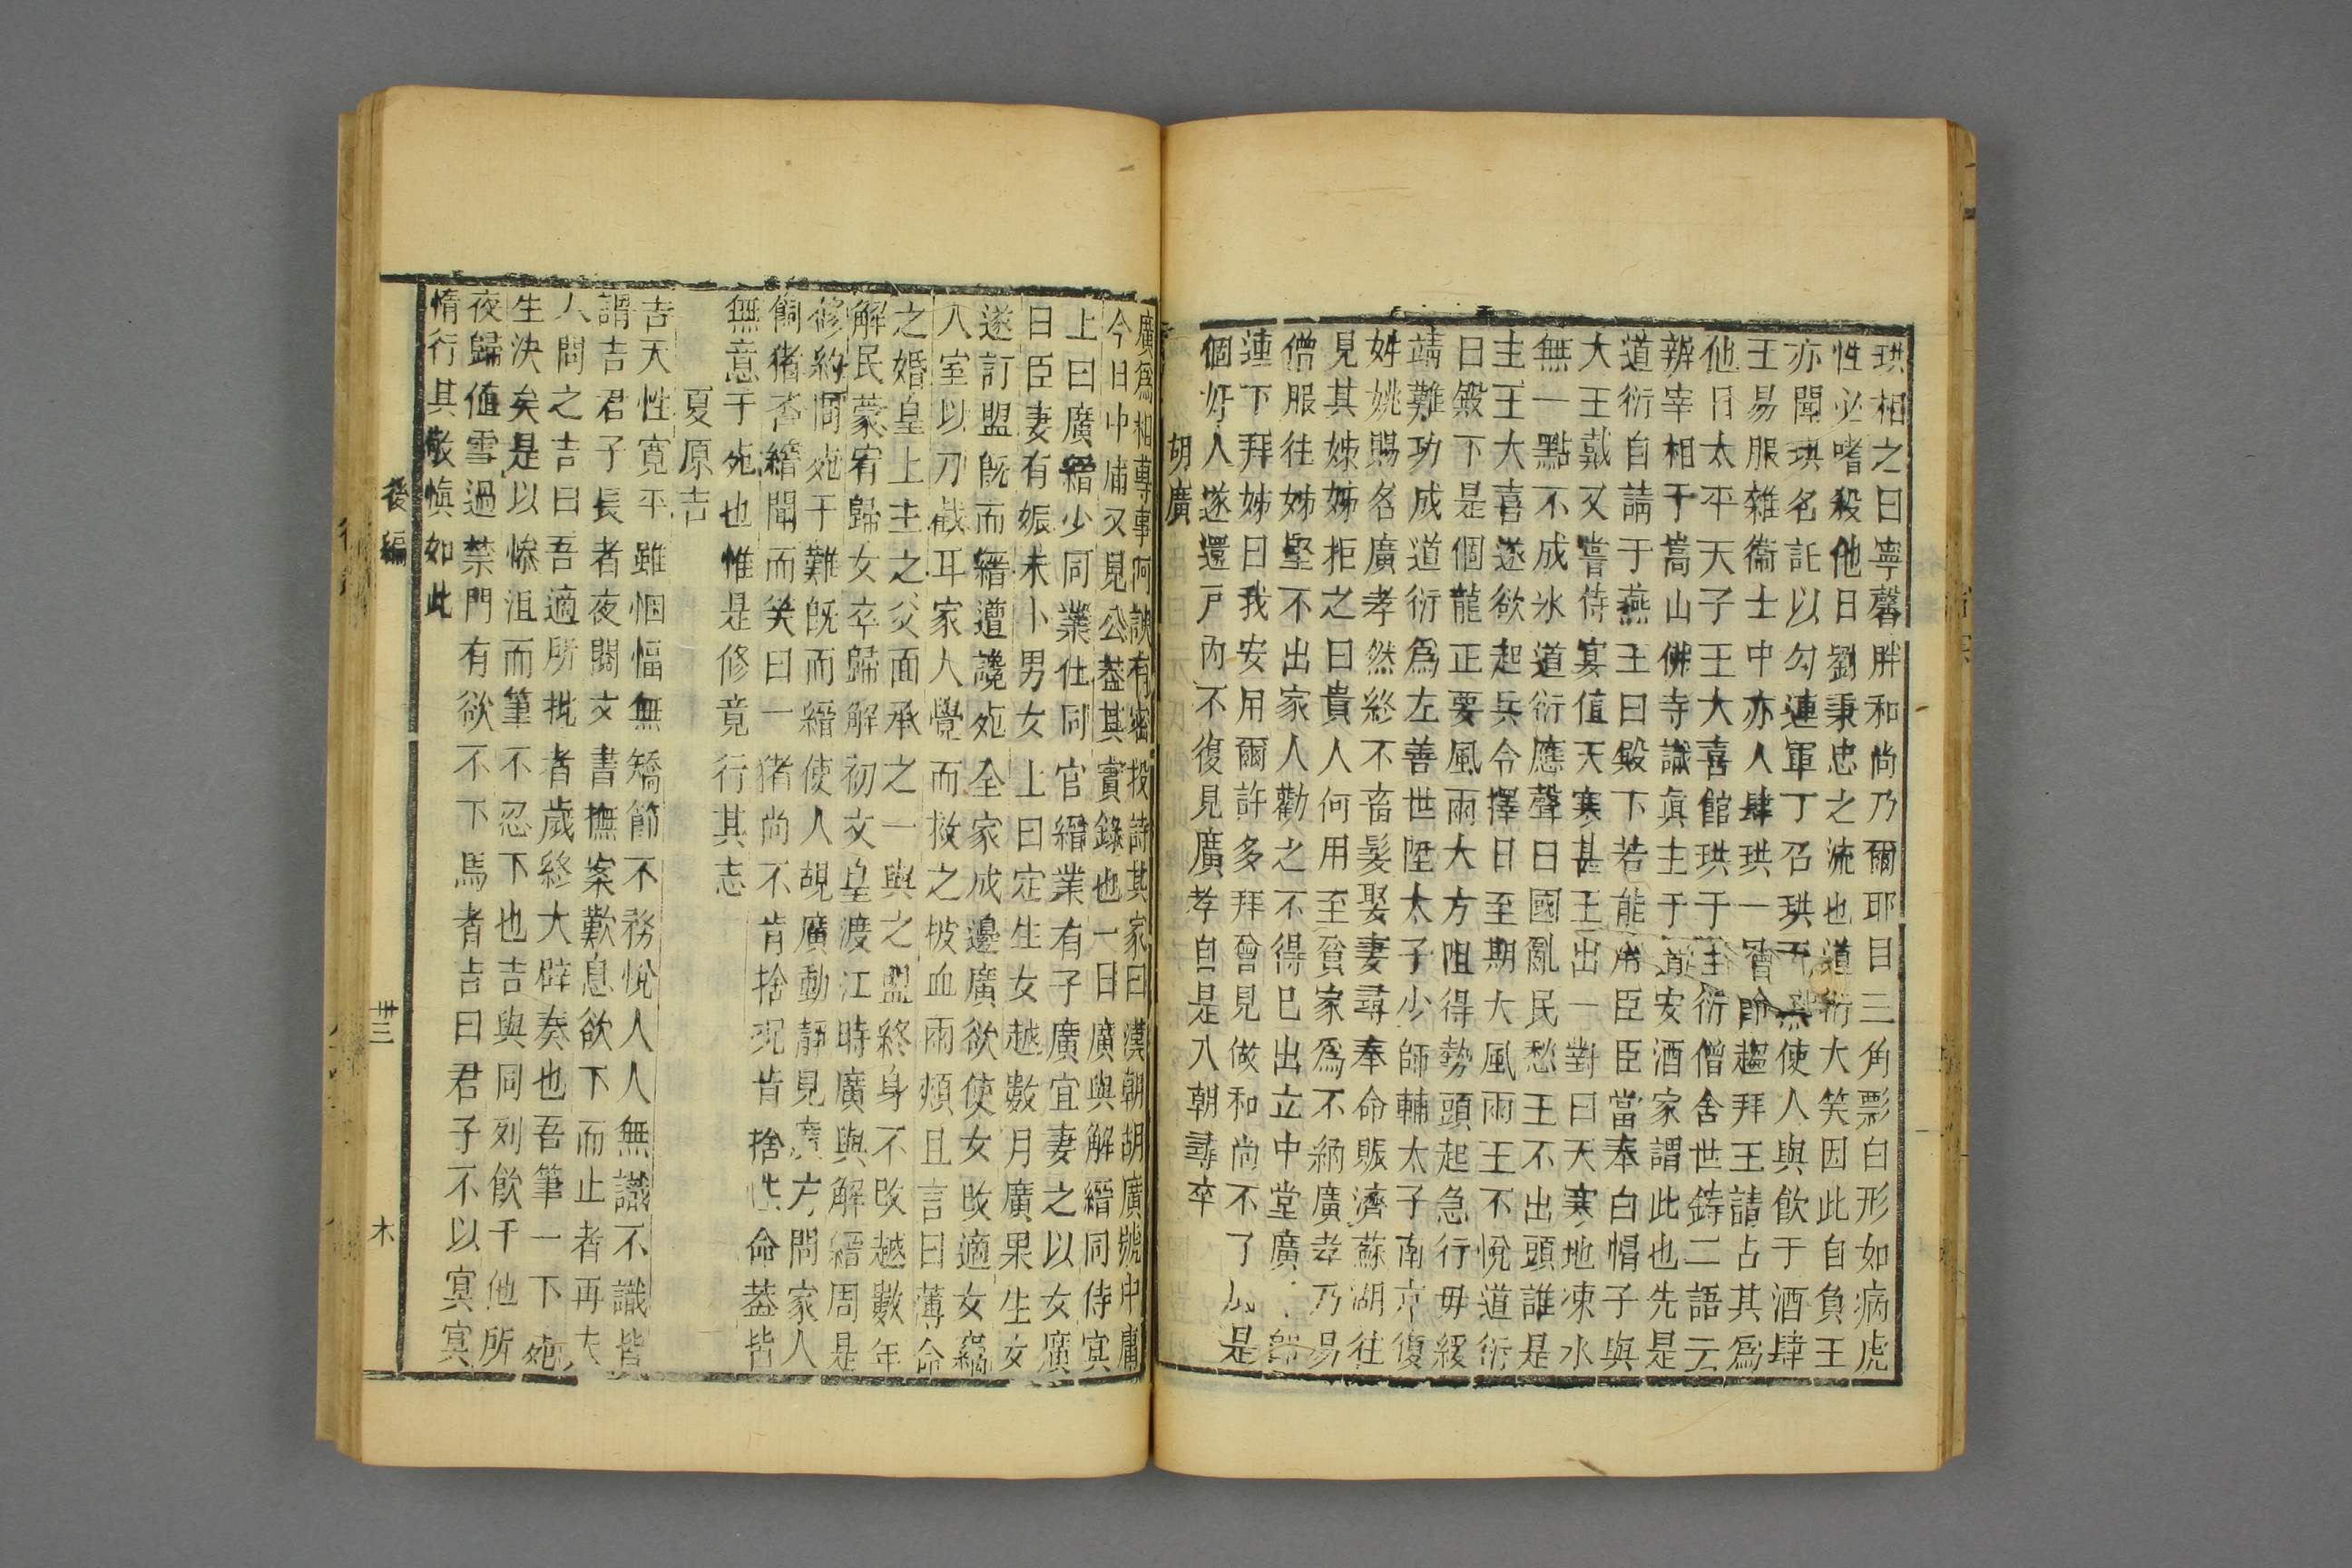 珙相之曰寧馨胖和尚乃爾耶目三角影白形如病虎
性必嗜殺他日劉秉忠之流也道衍大笑因此自負王
亦聞珙名託以勾連軍丁召珙至燕使人與飲于酒肆
王易服雜衞士中亦入肆珙一見即趨拜王請占其為
他日太平天子王大喜館珙于主衍僧舍世鑄二語云
辨宰相于嵩山佛寺識眞主于長安酒家謂此也先是
道衍自請于燕王曰殿下若能用臣臣當奉白帽子與
大王戴又嘗侍宴值天寒甚王出一對曰天寒地凍水
無一點不成氷道衍應聲曰國亂民愁王不出頭誰是
主王大喜遂欲起兵令擇日至期大風雨王不悅道衍
曰殿下是個龍正要風雨大方咀得勢頭起急行毋緩
靖難功成道衍為左善世陞太子少師輔太子南京復
姓姚賜名廣孝然終不畜髮娶妻尋奉命賑濟蘇湖往
見其姊姊拒之曰貴人何用至貧家為不納廣孝乃易
僧服往姊堅不出家人勸之不得已出立中堂廣
連下拜姊曰我安用爾許多拜曾見做和尚不了是
個好人遂還戸內不復見廣孝自是入朝尋卒
胡廣
廣為相專事阿諛有密投詩其家曰漢朝胡廣號中庸
今日中庸又見公葢其實錄也一日廣與解縉同侍宴
上曰廣縉少同業仕同官縉業有子廣宜妻之以女廣
曰臣妻有娠未卜男女上曰定生女越數月廣果生女
遂訂盟旣而縉遭讒死全家成邊廣欲使女改適女竊
入室以刀截耳家人覺而救之披血雨頰且言曰薄命
之婚皇上主之父面承之一與之盟終身不改越數年
解民蒙宥歸女卒歸解初文皇渡江時廣與解縉周是
修約同死于難旣而縉使人覘廣動靜見廣方問家人
飼猪否縉聞而笑曰一猪尚不肯捨况肯捨性命葢皆
無意于死也惟是修竟行其志
夏原吉
吉天性寬平雖悃愊無矯節不務悅人人無識不識皆
謂吉君子長者夜閱文書撫案歎息欲下而止者再夫
人問之吉曰吾適所批者歲終大辟奏也吾筆一下死
生決矣是以慘沮而筆不忍下也吉與同列飲于他所
夜歸值雪過禁門有欲不下馬者吉曰君子不以冥冥
惰行其敬愼如此
後編
木